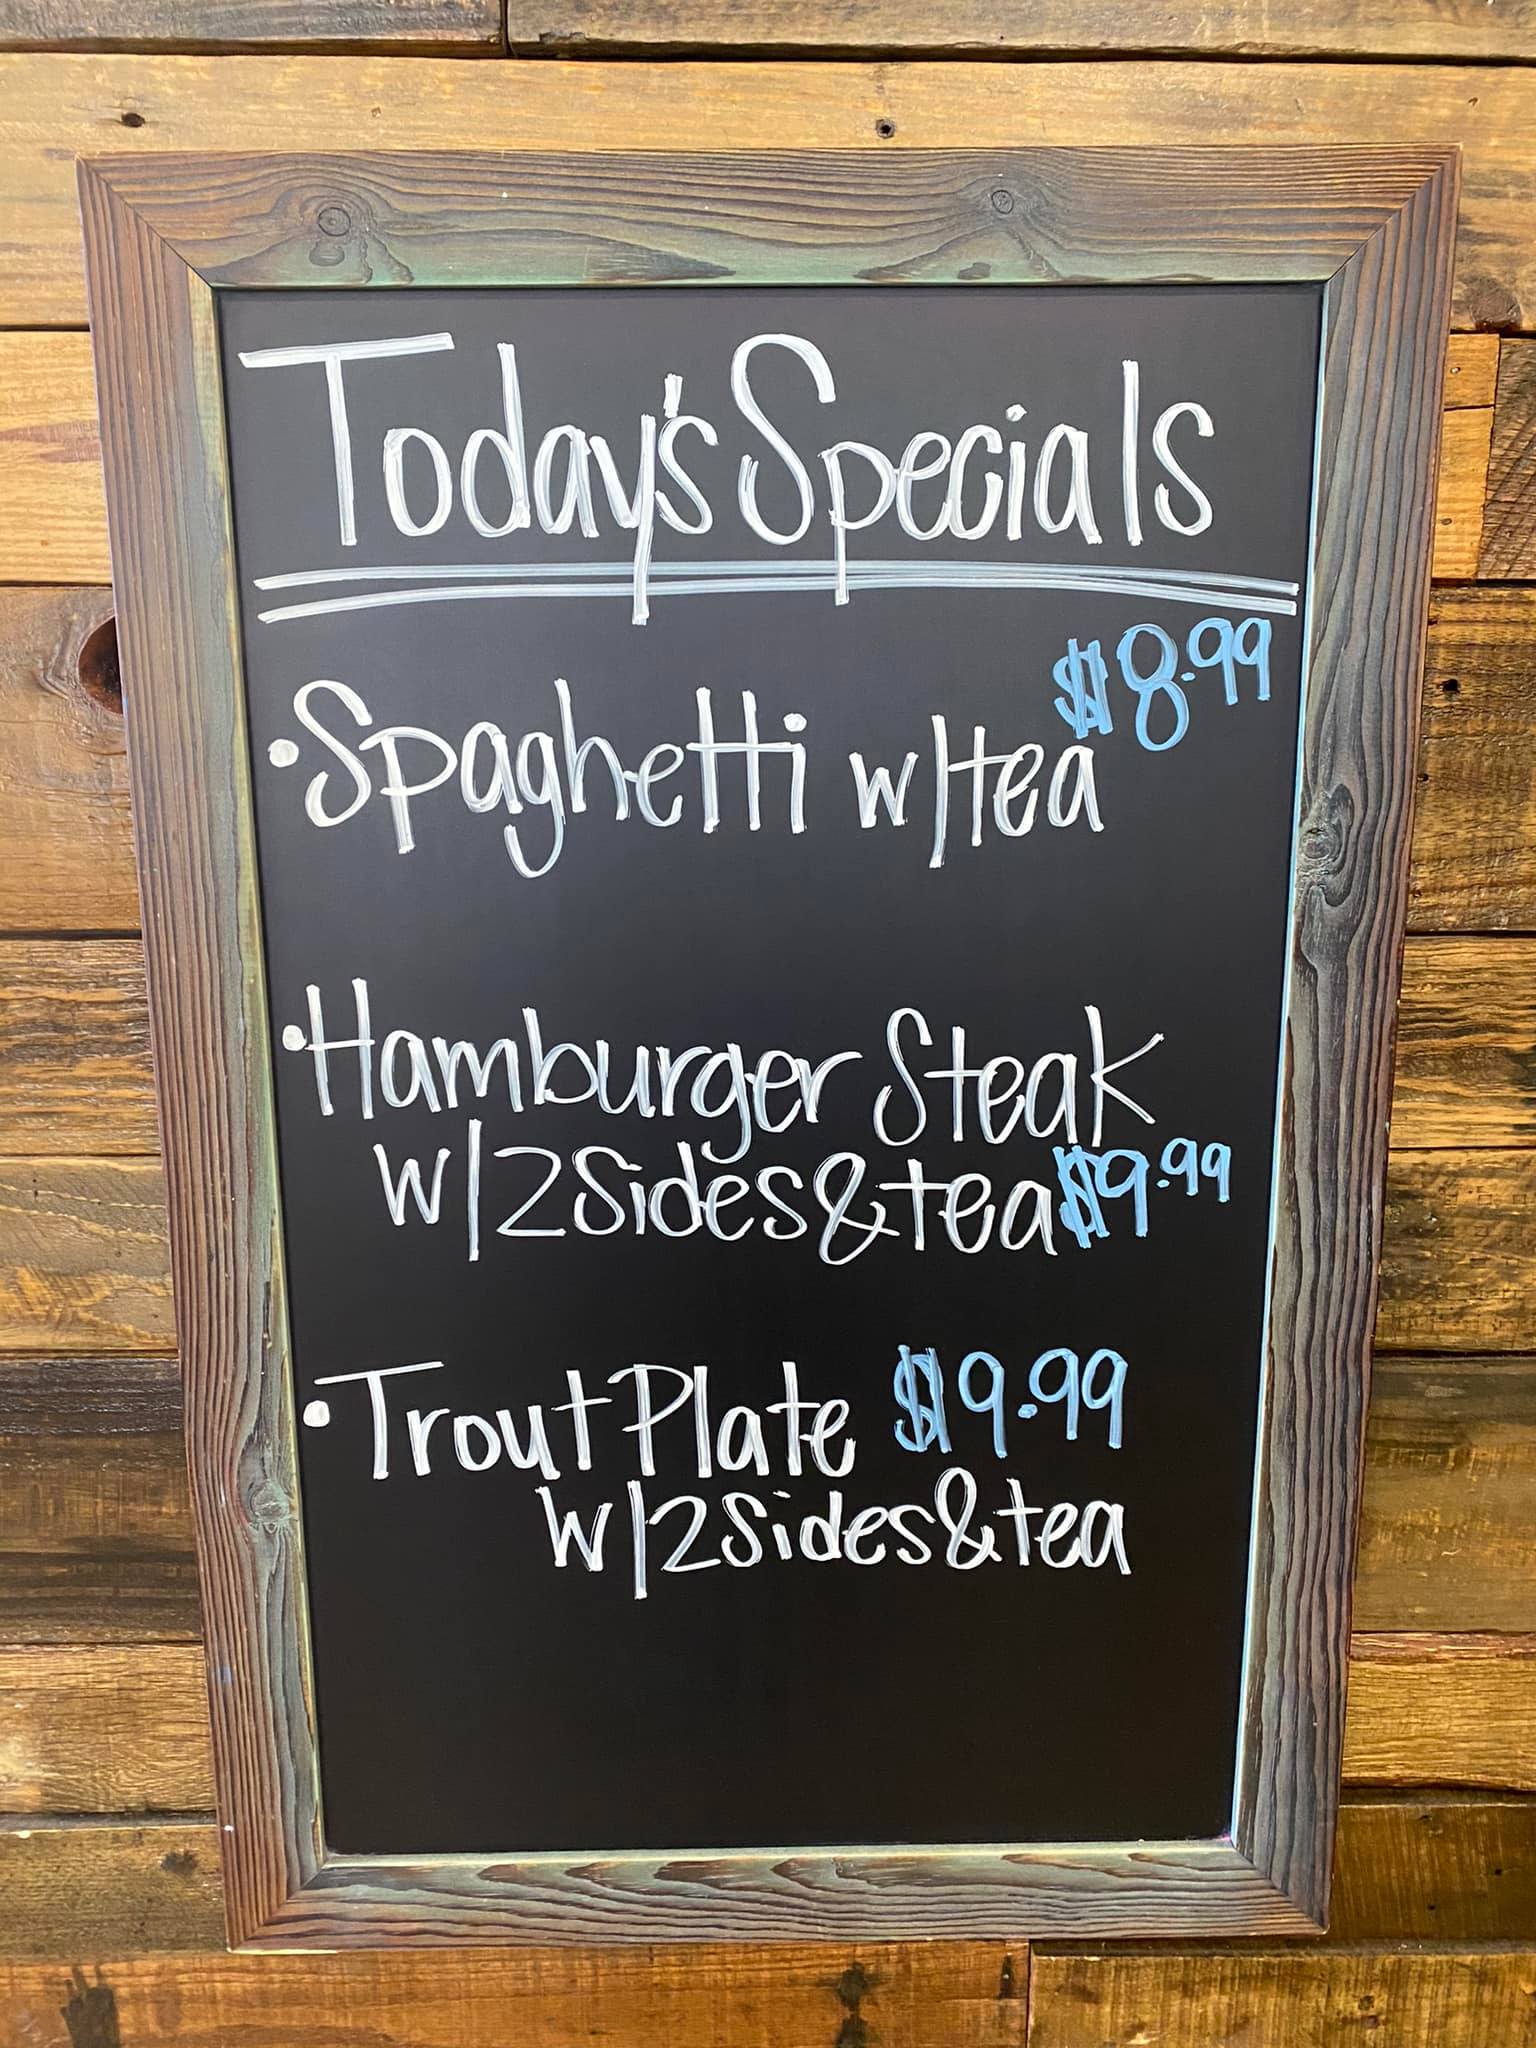 Today's Specials
•Spaghetti w/tea $8.99
•Hamburger Steak
w/2sides&tea $9.99
•Trout Plate $9.99
w/2sides&tea